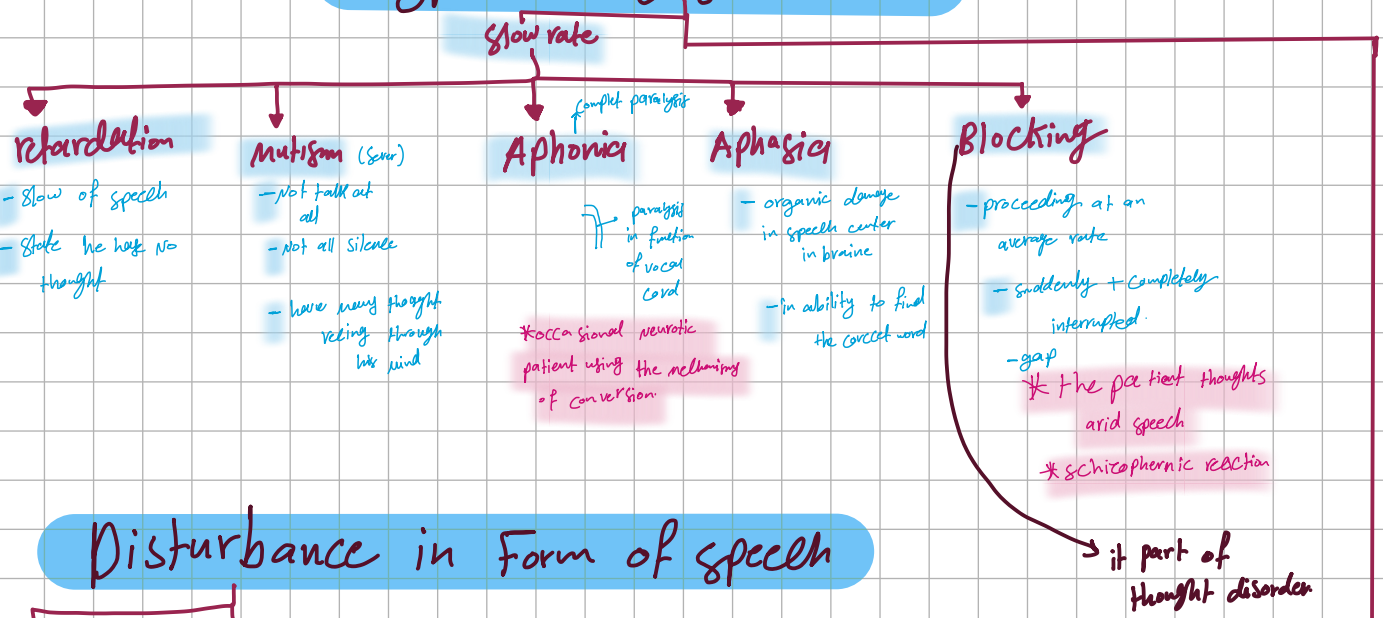 slow rate
retardation
- slow of speech
- state he have no
thought
Mutism (sever)
- Not talk at
all
- Not all silence
- have many thought
through
his mind
complet paralysis
Aphonia
paralysis
in function
of vocal
cord
*occasional neurotic
patient using the
of conversion.
Aphasia
- organic damage
in speech center
in braine
- in ability to find
the corccet word
Blocking
- proceeding at an
average rate
- suddenly + completely
interrupted.
- gap
* the patient thoughts
arid speech
* schizophernic reaction
it part of
thought disorder
Disturbance in Form of speech